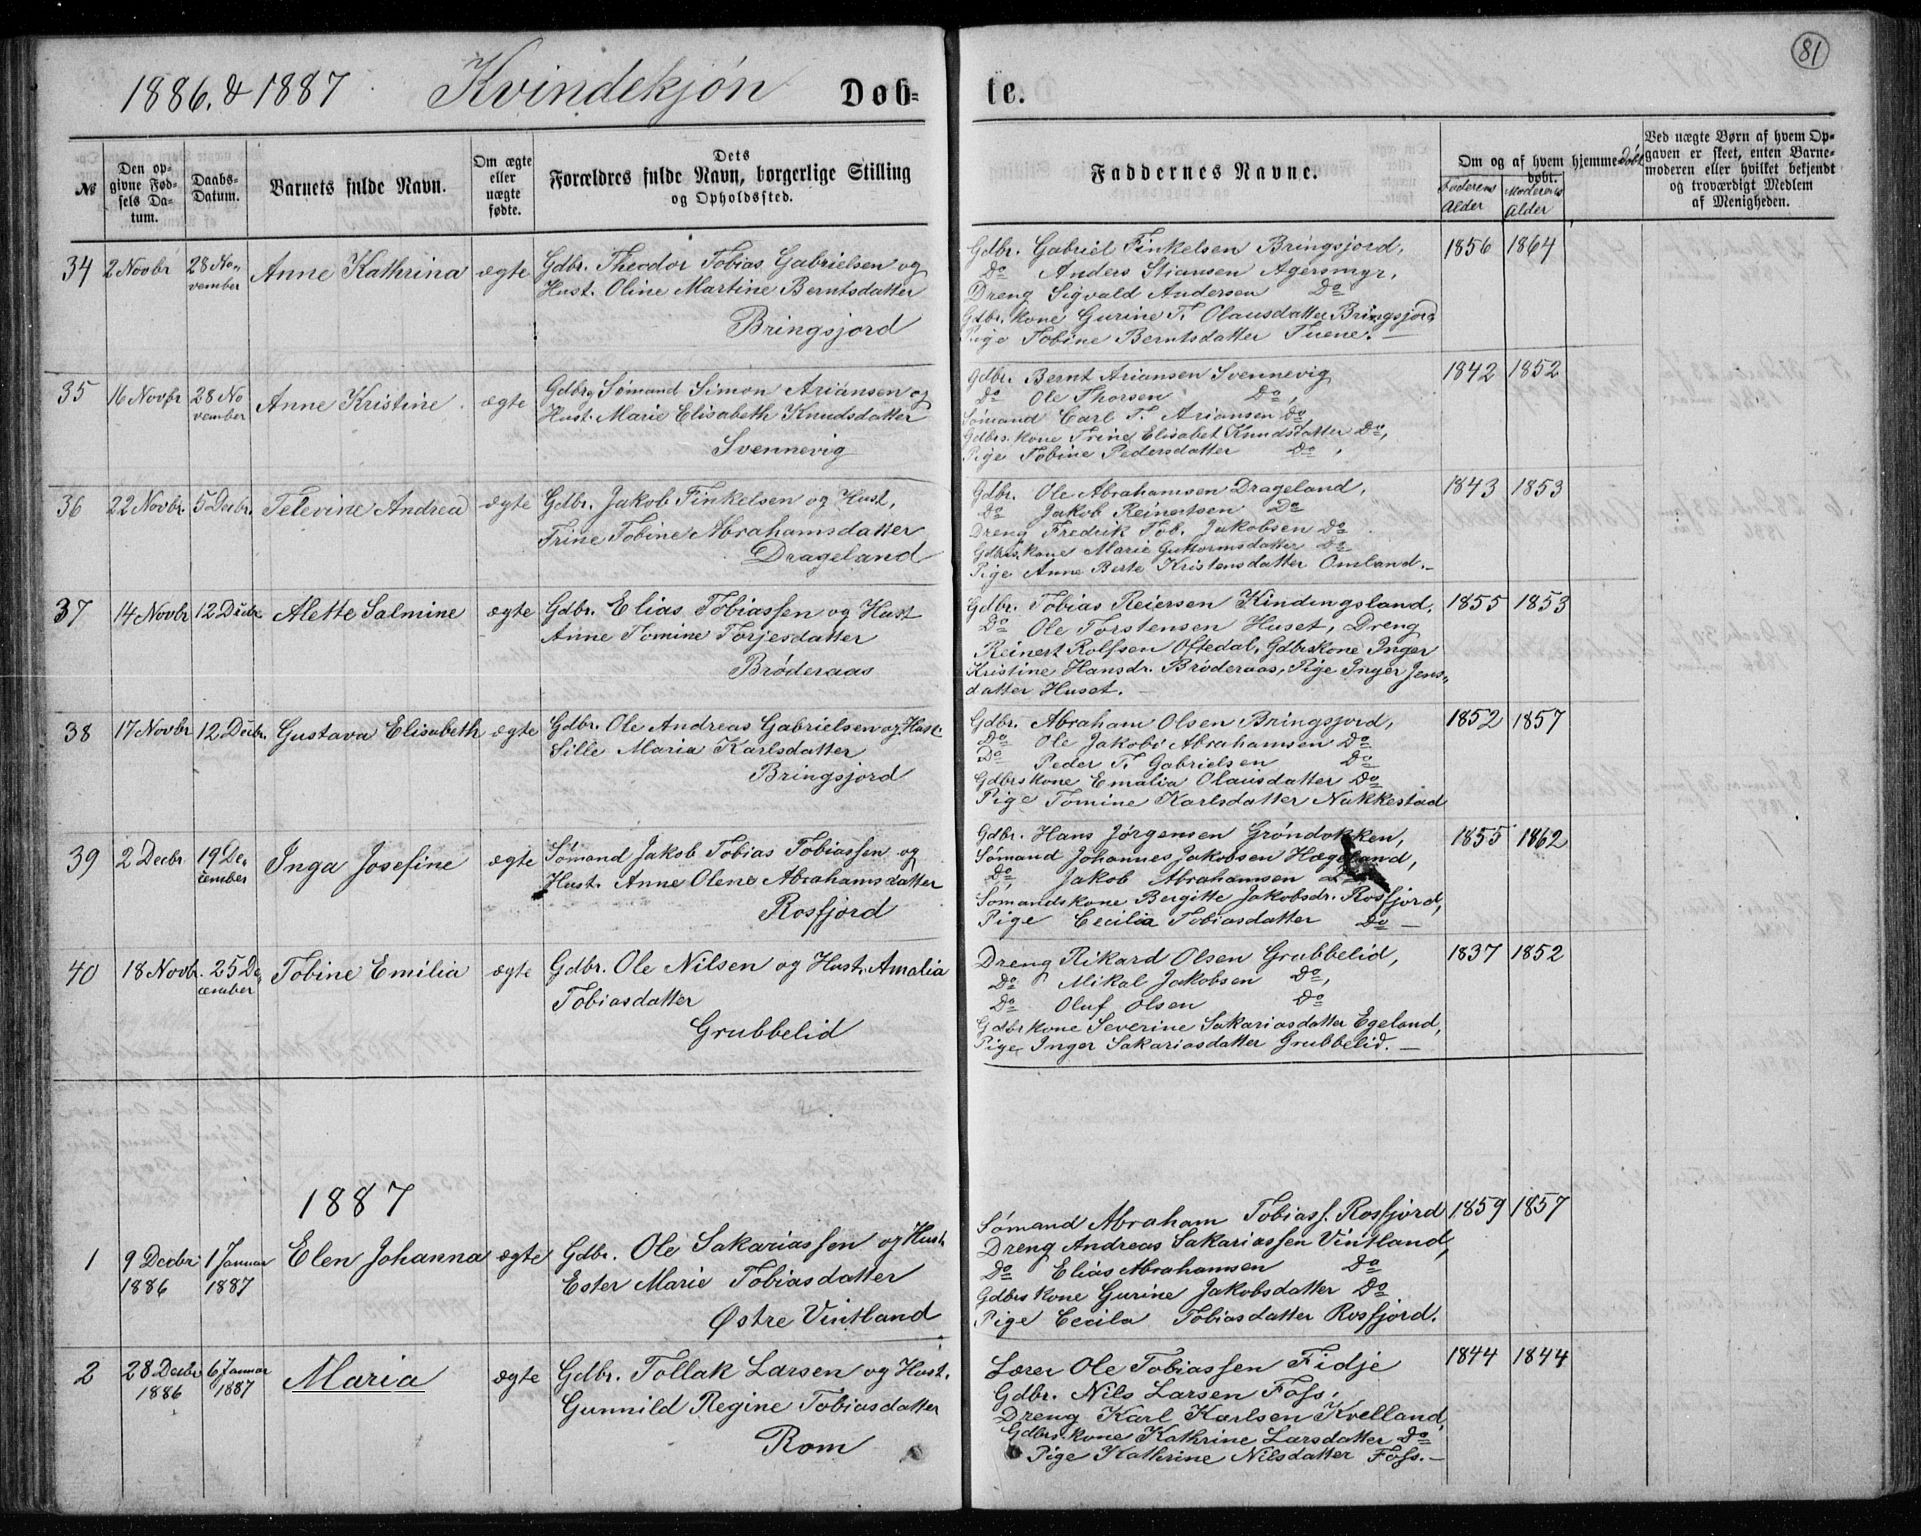 81
1886. & 1887 Kvindekjøn Døb= te.
№
Den opgivne Fødsels Datum.
Daabs-Datum.
Barnets fulde Navn.
Om ægte eller uægte fødte.
Dets Forældres fulde Navn, borgerlige Stilling og Opholdssted.
Faddernes Navne.
Om og af hvem hjemmedøbt
døbt.
Faderens Alder
Moderens Alder
Ved uægte Børn af hvem Opgaven er skeet, enten Barnemoderen eller hvilket bekjendt og troværdigt Medlem af Menigheden.
34 2 Novbr 28 November Anne Kathrina ægte
Gdbr. Theodor Tobias Gabrielsen og
Hust. Oline Martine Berntsdatter
Bringsjord
Gdbr. Gabriel Finkelsen Bringsjord,
Do Anders Stiansen Agersmyr,
Dreng Sigvald Andersen Do
Gdbr. kone Gurine T. Olausdatter Bringsjord
Pige Tobine Berntsdatter Tuene. —
1856 1864
35 16 Novbr 28 November Anne Kristine . ægte
Gdbr. Sømand Simon Ariansen og
Hust. Marie Elisabeth Knudsdatter
Svennevig
Gdbr. Bernt Ariansen Svennevig
Do Ole Thorsen Do,
Sømand Carl T. Ariansen Do
Gdbrs. kone Trine Elisabet Knudsdatter Do,
Pige Tobine Pedersdatter Do,
1842 1852
36 22 Novbr. 5 Decbr. Televine Andrea ægte
Gdbr. Jakob Finkelsen og Hust.
Trine Tobine Abrahamsdatter
Drageland
Gdbr. Ole Abrahamsen Drageland,
Do Jakob Reinertsen Do
Dreng Fredrik Tob. Jakobsen Do
Gdbrs. kone Marie Guttormsdatter Do
Pige Anne Berte Kristensdatter Omland. —
1843 1853
37 14 Novbr 12 Decbr. Alette Salmine ægte
Gdbr. Elias Tobiassen og Hust
Anne Tomine Torjesdatter
Brøderaas
Gdbr. Tobias Reiersen Kindingsland,
Do Ole Torstensen Huset, Dreng
Reinert Rolfsen Oftedal, Gdbrskone Inger
Kristine Hansdr. Brøderaas, Pige Inger Jens-
datter Huset. —
1855 1853
38 17 Novbr 12 Decbr. Gustava Elisabeth ægte
Gdbr. Ole Andreas Gabrielsen og Hust.
Sille Maria Karlsdatter
Bringsjord
Gdbr. Abraham Olsen Bringsjord,
Do Ole Jakobs Abrahamsen Do
Do Peder T. Gabrielsen Do
Gdbrs kone Emalia Olausdatter Do
Pige Tomine Karlsdatter Nakkestad
1852 1857
39 2 Decbr 19 December Inga Josefine ægte
Sømand Jakob Tobias Tobiassen og
Hust. Anne Olene Abrahamsdatter
Rosfjord
Gdbr. Hans Jørgensen Grøndokken,
Sømand Johannes Jakobsen Hægeland,
Do Jakob Abrahamsen
Sømandskone Bergitte Jakobsdr. Rosfjord,
Pige Cecilia Tobiasdatter Do —
1855 1862
40 18 Novb. 25 December Tobine Emilia ægte
Gdbr. Ole Nilsen og Hust. Amalia
Tobiasdatter
Grubbelid
Dreng Rikard Olsen Grubbelid,
Do Mikal Jakobsen Do,
Do Oluf Olsen Do
Gdbrkone Severine Sakariasdatter Egeland,
Pige Inger Sakariasdatter Grubbelid. —
1837 1852
1887
1 9 Decbr 1886 1 Januar 1887 Elen Johanna ægte
Gdbr. Ole Sakariassen og Hust.
Ester Marie Tobiasdatter
Østre Vintland
Sømand Abraham Tobiass. Rosfjord
Dreng Andreas Sakariassen Vintland,
Do Elias Abrahamsen Do
Gdbrs kone Gurine Jakobsdatter Do
Pige Cecila Tobiasdatter Rosfjord.
1859 1857
2 28 Decbr 1886 6 Januar 1887 Maria ægte
Gdbr. Tollak Larsen og Hust.
Gunnild Regine Tobiasdatter
Rom
Lærer Ole Tobiassen Fidje
Gdbr. Nils Larsen Foss,
Dreng Karl Karlsen Kvelland,
Gdbrs kone Kathrine Larsdatter Do
Pige Kathrine Nilsdatter Foss. —
1844 1844